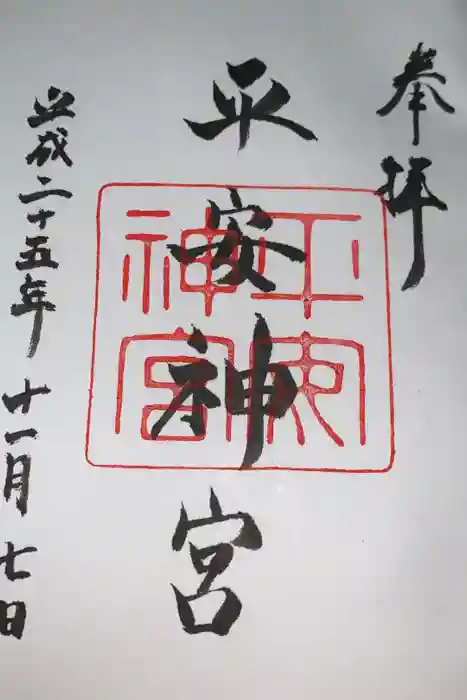 奉拝
平安神宮
平安神宮
平成二十五年十一月七日